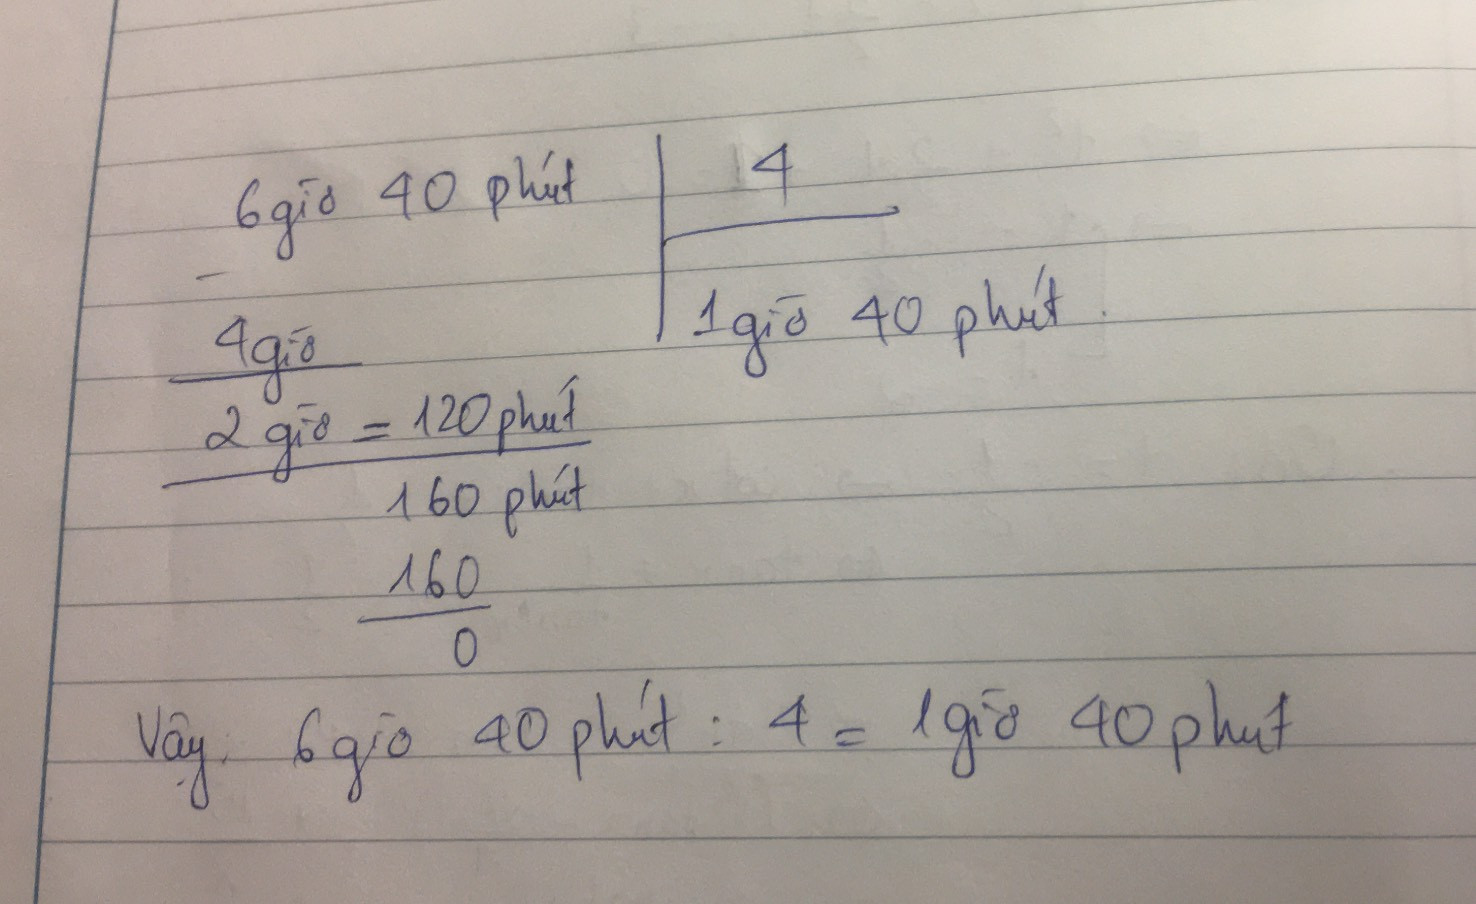 6 giờ 40 phút 4
4 giờ 1 giờ 40 phút.
2 giờ = 120 phút
160 phút
160
0
Vậy: 6 giờ 40 phút : 4 = 1 giờ 40 phút